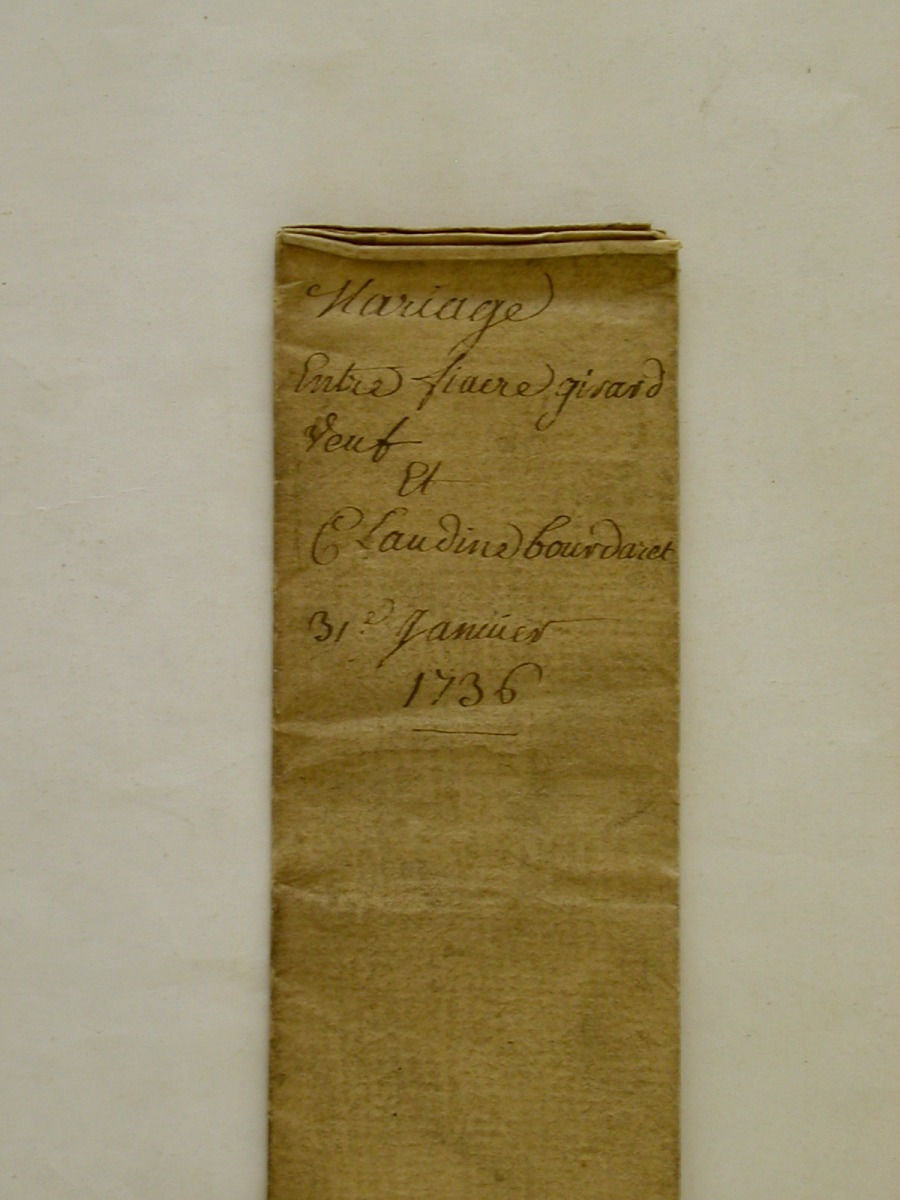 Mariage
Entre fiacre girard
Veuf
Et
Claudine bourdaret
31.e Janvier
1736